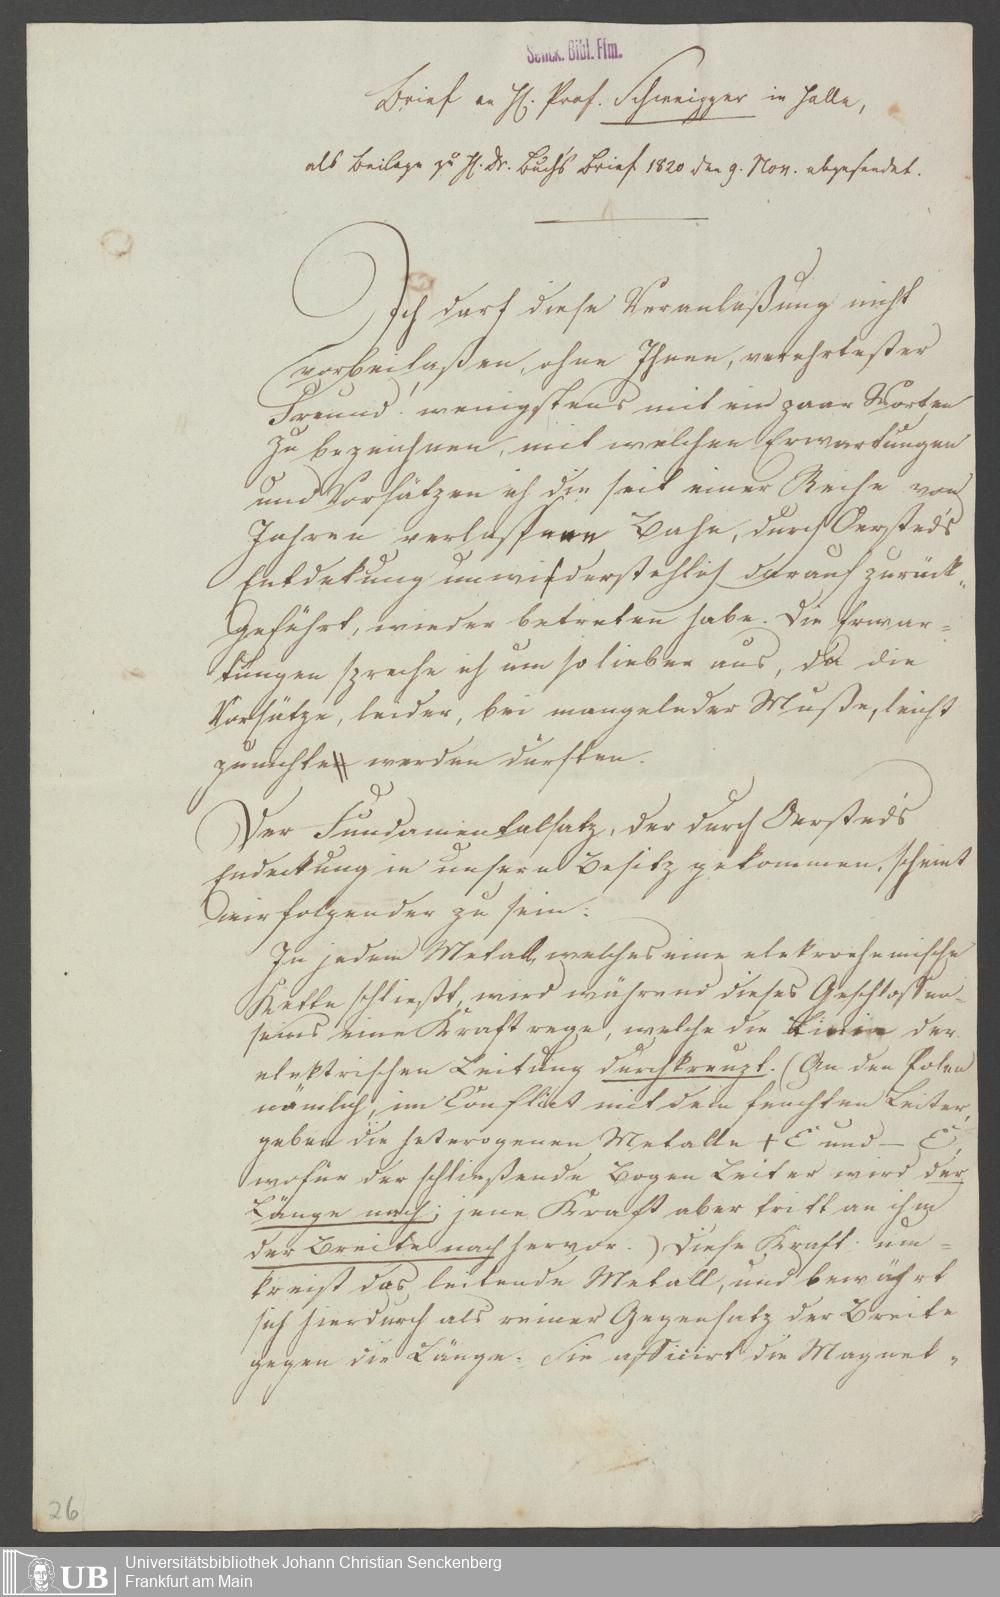 Senck. Bibl. Ffm.
Brief an H. Prof. Schweigger in Halle,
als Beilage zu H. Dr. Buch's Brief 1820 den 9. Nov. abgesendet.
Ich darf diese Veranlaßung nicht
vorbeilaßen, ohne Ihnen, verehrtester
Freund! wenigstens mit ein paar Worten
zu bezeichnen, mit welchen Erwartungen
und Vorsätzen ich die seit einer Reihe von
Jahren verlassene Bahn, durch Oersted's
Entdekung unwiederstehlich darauf zurück-
geführt, wieder betreten habe. Die Erwar-
tungen spreche ich um so lieber aus, da die
Vorsätze, leider, bei mangelnder Muße, leicht
zunichte werden dürften.
Der Fundamentalsatz, der durch Oersted's
Endeckung in unsern Besitz gekommen, scheint
mir folgender zu sein:
In jedem Metall, welches eine elekrochemische
Kette schließt, wird während dieses Geschlossen-
seins eine Kraft rege, welche die Linie der
elektrischen Leitung durchkreuzt. (An den Polen
nämlich, im Conflict mit dem feuchten Leiter,
geben die heterogenen Metalle + E und - E,
wofür der schließende Bogen Leiter wird der
Länge nach; jene Kraft aber tritt an ihm
der Breite nach hervor.) Diese Kraft um-
kreist das leitende Metall, und bewährt
sich hierdurch als reiner Gegensatz der Breite
gegen die Länge. Sie afficirt die Magnet-
26
UB
Universitätsbibliothek Johann Christian Senckenberg
Frankfurt am Main